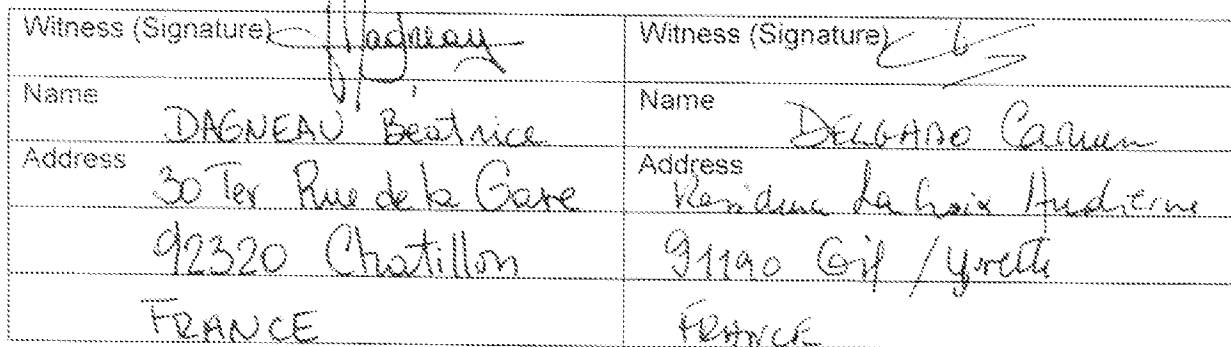 Witness (Signature) Dagneau
Name DAGNEAU Béatrice
Address 30 Ter Rue de la Gare
92320 Chatillon
FRANCE
Witness (Signature)
Name DELGADO Carmen
Address Residence La Croix Audierne
91190 Gif / Yvette
FRANCE